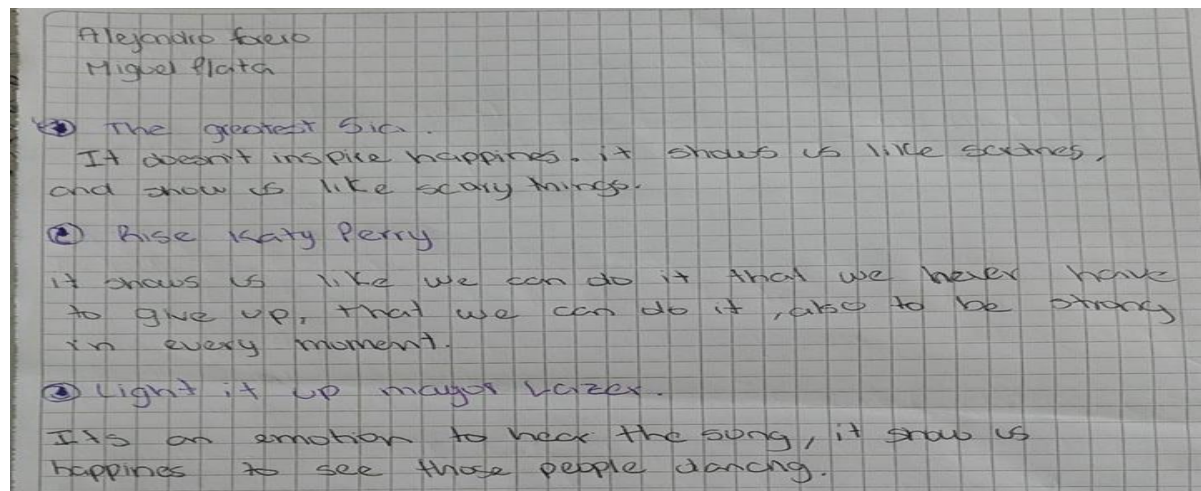 Alejandro forero
Miguel Plata
The greatest Sia.
It doesn't inspire happines. it shows us like sadnes,
and show us like scary things.
② Rise Katy Perry
it shows us like we can do it that we never have
to give up, that we can do it, also to be strong
in every moment.
③ Light it up mayor Lazer.
It's an emotion to hear the song, it show us
happines to see those people dancing.